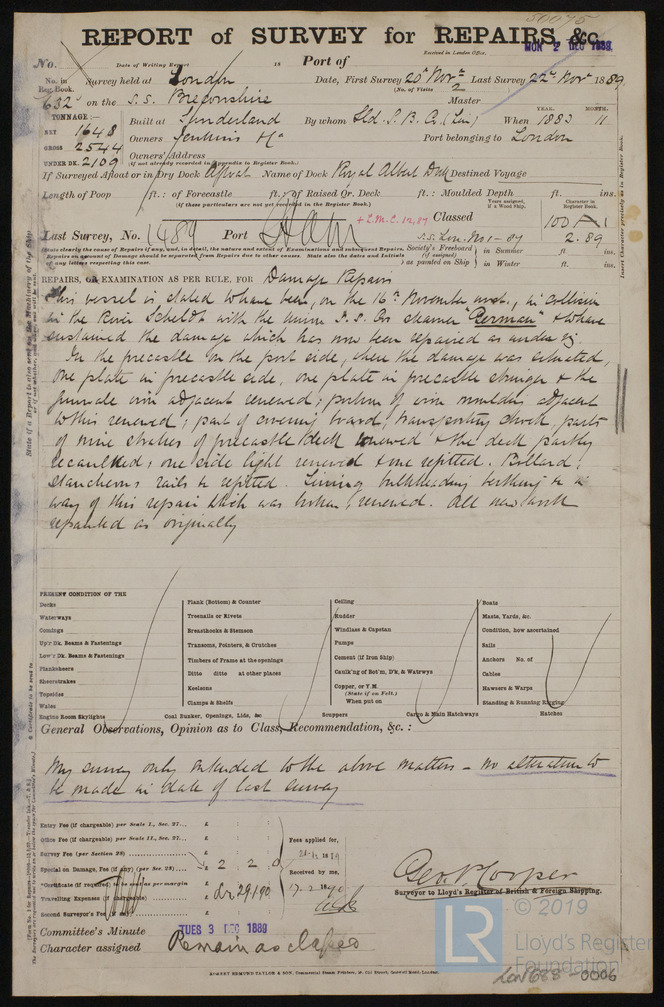 50075
REPORT OF SURVEY for REPAIRS, &c.
MON 2 DEC 1889
Received in London Office.
No. Date of Writing Report 18 Port of
No. in Reg. Book. Survey held at London Date, First Survey 20th Novr Last Survey 22nd Novr 1889
(No. of Visits 2
632 on the S.S. Breconshire Master
TONNAGE:— YEAR. MONTH.
NET 1648 Built at Sunderland By whom Sld. S. B. Co. (Lim) When 1883 11
GROSS 2544 Owners Jenkins & Co Port belonging to London
UNDER DK. 2109 Owners' Address
(if not already recorded in Appendix to Register Book.)
If Surveyed Afloat or in Dry Dock Afloat Name of Dock Royal Albert Dock Destined Voyage
Length of Poop ft.: of Forecastle ft.: of Raised Qr. Deck ft.: Moulded Depth ft. ins.
(If these particulars are not yet recorded in the Register Book.)
Years assigned, if a Wood Ship. Character in Register Book.
+ L.M.C. 12,87 Classed 100 A 1
Last Survey, No. 1489 Port S.S. Lon. No 1 - 87 2.89
(State clearly the cause of Repairs if any, and, in detail, the nature and extent of Examinations and subsequent Repairs.
Repairs on account of Damage should be separated from Repairs due to other causes. State also the dates and Initials
of any letters respecting this case.
Society's Freeboard (if assigned) as painted on Ship in Summer ft. ins.
in Winter ft. ins.
REPAIRS, OR EXAMINATION AS PER RULE, FOR Damage Repairs
This vessel is stated to have been, on the 16th November inst., in collision
in the River Scheldt with the Union S.S. Cos steamer "German" & to have
sustained the damage which has now been repaired as under viz
In the forecastle on the port side, where the damage was situated,
one plate in forecastle side, one plate in forecastle stringer & the
gunwale iron adjacent renewed; portion of iron moulding adjacent
to this renewed; part of covering board, transporting chock, parts
of nine strakes of forecastle deck renewed & the deck partly
recaulked; one side light renewed & one refitted. Bollard,
stanchions rails &c refitted. Lining bulkheading berthing &c in
way of this repair which was broken, renewed. All new work
repainted as originally
PRESENT CONDITION OF THE
Decks
Waterways
Comings
Up'r Dk. Beams & Fastenings
Low'r Dk. Beams & Fastenings
Planksheers
Sheerstrakes
Topsides
Wales
Engine Room Skylights
Plank (Bottom) & Counter
Treenails or Rivets
Breasthooks & Stemson
Transoms, Pointers, & Crutches
Timbers of Frame at the openings
Ditto ditto at other places
Keelsons
Clamps & Shelfs
Coal Bunker, Openings, Lids, &c.
Ceiling
Rudder
Windlass & Capstan
Pumps
Cement (if Iron Ship)
Caulk'ng of Bot'm, D'k, & Watrwys
Copper, or Y.M.
(State if on Felt.)
When put on
Scuppers
Cargo & Main Hatchways
Boats
Masts, Yards, &c.
Condition, how ascertained
Sails
Anchors No. of
Cables
Hawsers & Warps
Standing & Running Rigging
Hatches
General Observations, Opinion as to Class, Recommendation, &c.:
My survey only extended to the above matters — no alteration to
be made in date of last survey
Entry Fee (if chargeable) per Scale I., Sec. 27... £
Office Fee (if chargeable) per Scale II., Sec. 27... £
Survey Fee (per Section 28) £
Special on Damage, Fee (if any) (per Sec. 28)... £ 2 2 0
*Certificate (if required) to be sent as per margin
Travelling Expenses (if chargeable) £
Second Surveyor's Fee, £
Fees applied for,
1889
Received by me,
Geo. N. Cooper
Surveyor to Lloyd's Register of British & Foreign Shipping.
Committee's Minute TUES 3 DEC 1889
Character assigned Remain as classed
ROBERT EDMUND TAYLOR & SON, Commercial Steam Printers, 19, Old Street, Goswell Road, London.
LR
© 2019
Lloyd's Register
Foundation
LON688-0006